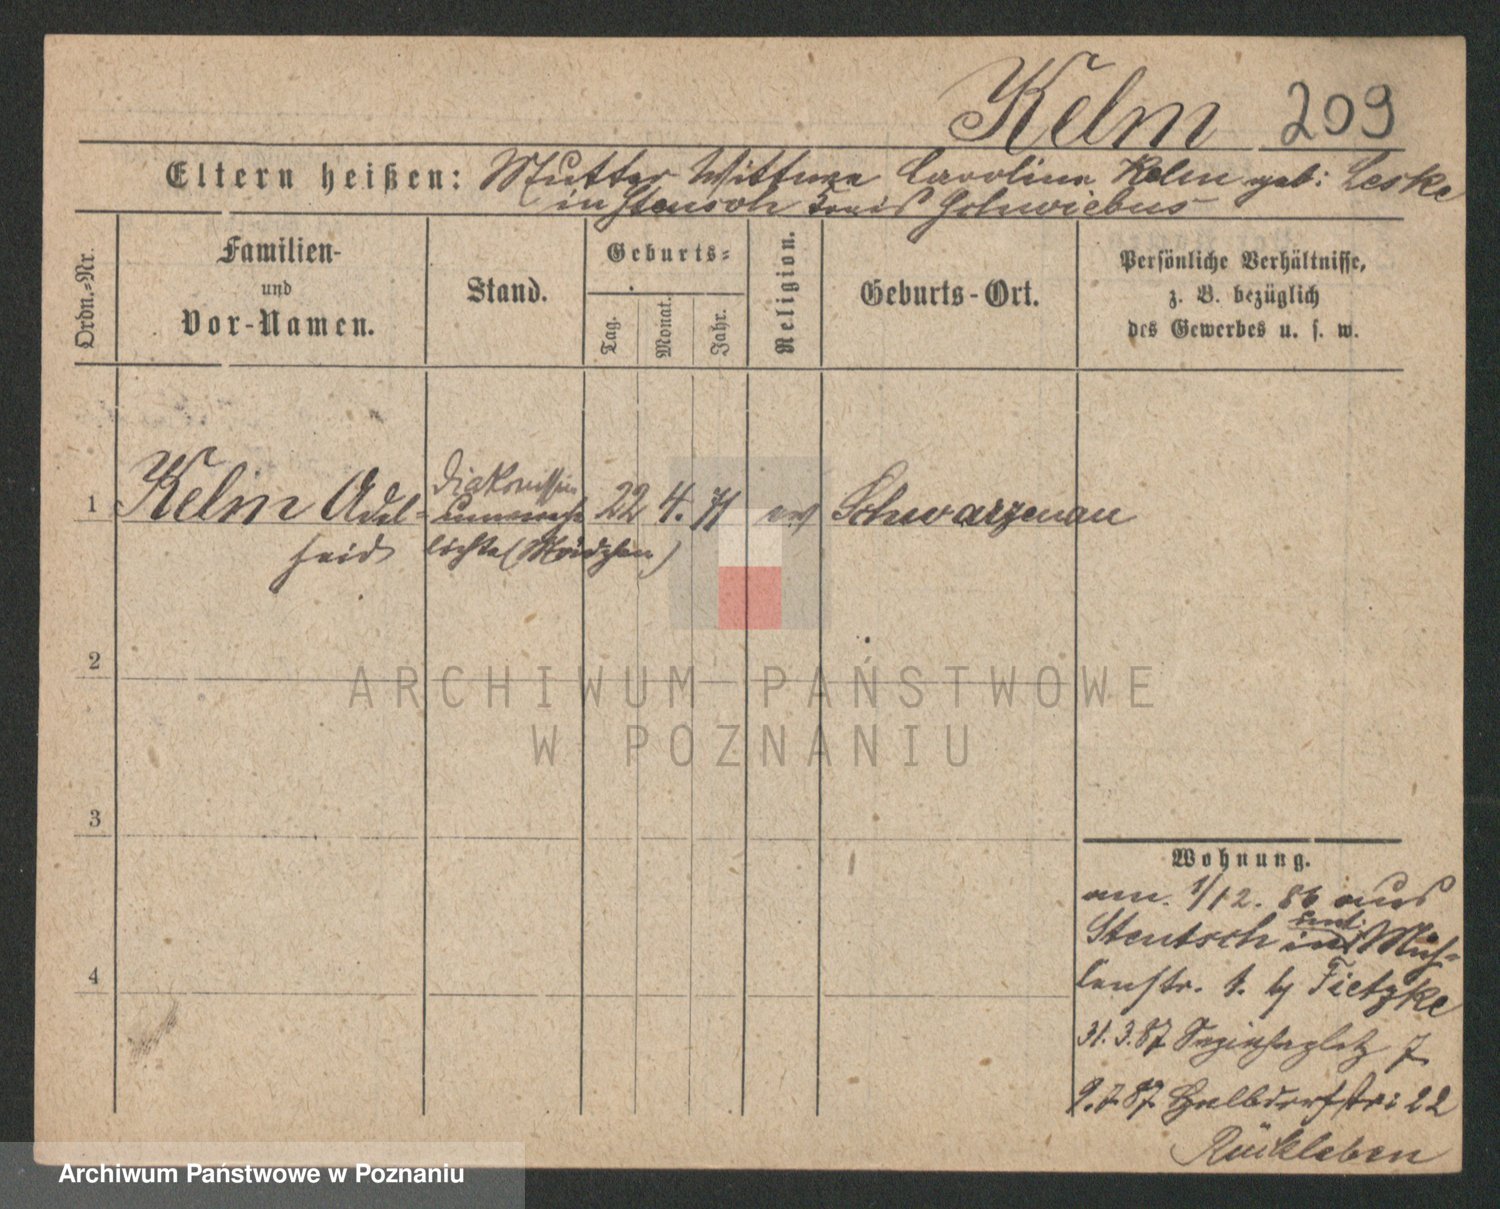 Kelm 209
Eltern heißen: Mutter Wittwe Caroline Kelm geb: Leske
in Stensch Kreis Schwiebus
Ordn.-Nr.
Familien-
und
Vor-Namen.
Stand.
Geburts-
Tag.
Monat.
Jahr.
Religion.
Geburts-Ort.
Persönliche Verhältnisse,
z. B. bezüglich
des Gewerbes u. s. w.
Diakonissin
1 Kelm Adel- unverehe 22 4. 71 ev Schwarzenau
heid lichte (Mädchen)
2
ARCHIWUM PAŃSTWOWE
W POZNANIU
3
4
Wohnung.
am. 1/12. 86 aus
Stentsch Müh-
lenstr. 1. by Tietzke
31. 3. 87 7
9. 7. 87 Halbdorfstr: 22
Archiwum Państwowe w Poznaniu